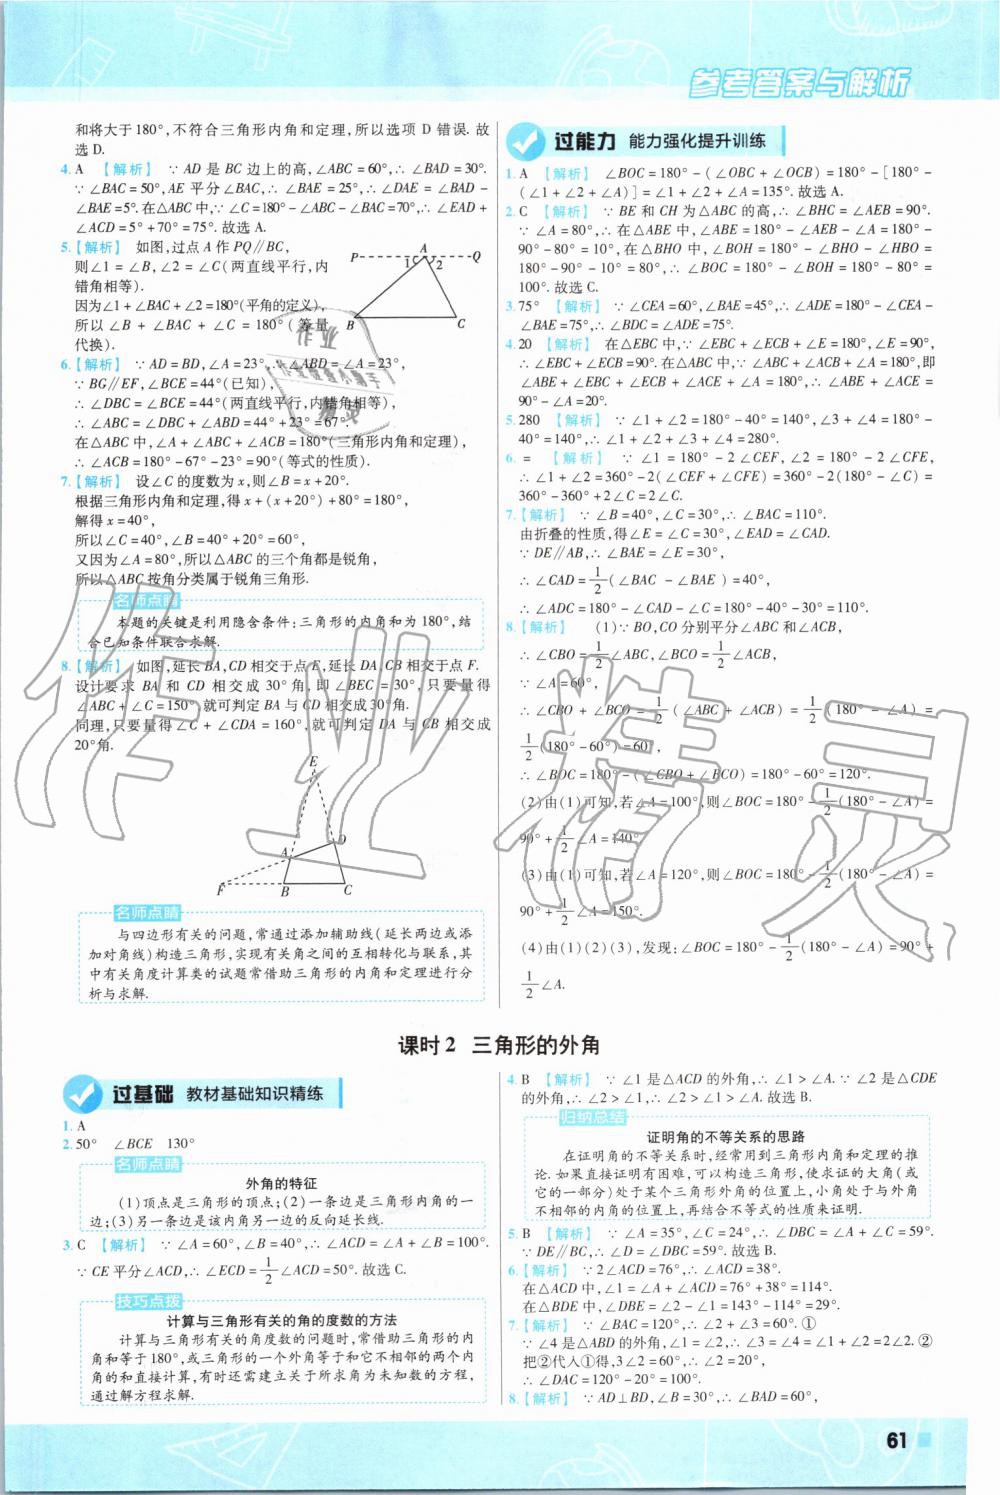 参考答案与解析
和将大于180°,不符合三角形内角和定理,所以选项 D 错误. 故
选 D.
4. A 【解析】 ∵ AD 是 BC 边上的高,∠ABC=60°,∴ ∠BAD=30°.
∵ ∠BAC=50°,AE 平分∠BAC,∴ ∠BAE=25°,∴ ∠DAE=∠BAD-
∠BAE=5°.在△ABC中,∵ ∠C=180°-∠ABC-∠BAC=70°,∴ ∠EAD+
∠ACD=5°+70°=75°. 故选 A.
5.【解析】 如图,过点 A 作 PQ∥BC,
则∠1=∠B,∠2=∠C(两直线平行,内
错角相等).
因为∠1+∠BAC+∠2=180°(平角的定义),
所以 ∠B + ∠BAC + ∠C = 180°(等量
代换).
P A Q
1 2
B C
6.【解析】 ∵ AD=BD,∠A=23°,∴ ∠ABD=∠A=23°,
∵ BG∥EF,∠BCE=44°(已知),
∴ ∠DBC=∠BCE=44°(两直线平行,内错角相等),
∴ ∠ABC=∠DBC+∠ABD=44°+23°=67°.
在△ABC 中,∠A+∠ABC+∠ACB=180°(三角形内角和定理),
∴ ∠ACB=180°-67°-23°=90°(等式的性质).
7.【解析】 设∠C 的度数为 x,则∠B=x+20°.
根据三角形内角和定理,得 x+(x+20°)+80°=180°,
解得 x=40°,
所以∠C=40°,∠B=40°+20°=60°,
又因为∠A=80°,所以△ABC 的三个角都是锐角,
所以△ABC 按角分类属于锐角三角形.
名师点睛
本题的关键是利用隐含条件:三角形的内角和为 180°,结
合已知条件联合求解.
8.【解析】 如图,延长 BA,CD 相交于点 E,延长 DA,CB 相交于点 F.
设计要求 BA 和 CD 相交成 30°角,即∠BEC=30°,只要量得
∠ABC+∠C=150°,就可判定 BA 与 CD 相交成 30°角.
同理,只要量得∠C+∠CDA=160°,就可判定 DA 与 CB 相交成
20°角.
E
D
A
F B C
名师点睛
与四边形有关的问题,常通过添加辅助线(延长两边或添
加对角线)构造三角形,实现有关角之间的互相转化与联系,其
中有关角度计算类的试题常借助三角形的内角和定理进行分
析与求解.
过能力 能力强化提升训练
1. A 【解析】 ∠BOC=180°-(∠OBC+∠OCB)=180°-[180°-
(∠1+∠2+∠A)]=∠1+∠2+∠A=135°. 故选 A.
2. C 【解析】 ∵ BE 和 CH 为△ABC 的高,∴ ∠BHC=∠AEB=90°.
∵ ∠A=80°,∴ 在△ABE 中,∠ABE=180°-∠AEB-∠A=180°-
90°-80°=10°,在△BHO 中,∠BOH=180°-∠BHO-∠HBO=
180°-90°-10°=80°,∴ ∠BOC=180°-∠BOH=180°-80°=
100°. 故选 C.
3. 75° 【解析】 ∵ ∠CEA=60°,∠BAE=45°,∴ ∠ADE=180°-∠CEA-
∠BAE=75°,∴ ∠BDC=∠ADE=75°.
4. 20 【解析】 在△EBC 中,∵ ∠EBC+∠ECB+∠E=180°,∠E=90°,
∴ ∠EBC+∠ECB=90°.在△ABC 中,∵ ∠ABC+∠ACB+∠A=180°,即
∠ABE+∠EBC+∠ECB+∠ACE+∠A=180°,∴ ∠ABE+∠ACE=
90°-∠A=20°.
5. 280 【解析】 ∵ ∠1+∠2=180°-40°=140°,∠3+∠4=180°-
40°=140°,∴ ∠1+∠2+∠3+∠4=280°.
6. = 【解析】 ∵ ∠1=180°-2∠CEF,∠2=180°-2∠CFE,
∴ ∠1+∠2=360°-2(∠CEF+∠CFE)=360°-2(180°-∠C)=
360°-360°+2∠C=2∠C.
7.【解析】 ∵ ∠B=40°,∠C=30°,∴ ∠BAC=110°.
由折叠的性质,得∠E=∠C=30°,∠EAD=∠CAD.
∵ DE∥AB,∴ ∠BAE=∠E=30°,
∴ ∠CAD=1/2(∠BAC-∠BAE)=40°,
∴ ∠ADC=180°-∠CAD-∠C=180°-40°-30°=110°.
8.【解析】 (1)∵ BO,CO 分别平分∠ABC 和∠ACB,
∴ ∠CBO=1/2∠ABC,∠BCO=1/2∠ACB,
∵ ∠A=60°,
∴ ∠CBO+∠BCO=1/2(∠ABC+∠ACB)=1/2(180°-∠A)=
1/2(180°-60°)=60°,
∴ ∠BOC=180°-(∠CBO+∠BCO)=180°-60°=120°.
(2)由(1)可知,若∠A=100°,则∠BOC=180°-1/2(180°-∠A)=
90°+1/2∠A=140°.
(3)由(1)可知,若∠A=120°,则∠BOC=180°-1/2(180°-∠A)=
90°+1/2∠A=150°.
(4)由(1)(2)(3),发现:∠BOC=180°-1/2(180°-∠A)=90°+
1/2∠A.
课时 2 三角形的外角
过基础 教材基础知识精练
1. A
2. 50° ∠BCE 130°
名师点睛
外角的特征
(1)顶点是三角形的顶点;(2)一条边是三角形内角的一
边;(3)另一条边是该内角另一边的反向延长线.
3. C 【解析】 ∵ ∠A=60°,∠B=40°,∴ ∠ACD=∠A+∠B=100°.
∵ CE 平分∠ACD,∴ ∠ECD=1/2∠ACD=50°. 故选 C.
技巧点拨
计算与三角形有关的角的度数的方法
计算与三角形有关的角度数的问题时,常借助三角形的内
角和等于 180°,或三角形的一个外角等于和它不相邻的两个内
角的和直接计算,有时还需建立关于所求角为未知数的方程,
通过解方程求解.
4. B 【解析】 ∵ ∠1 是△ACD 的外角,∴ ∠1>∠A. ∵ ∠2 是△CDE
的外角,∴ ∠2>∠1,∴ ∠2>∠1>∠A. 故选 B.
归纳总结
证明角的不等关系的思路
在证明角的不等关系时,经常用到三角形内角和定理的推
论. 如果直接证明有困难,可以构造三角形,使求证的大角(或
它的一部分)处于某个三角形外角的位置上,小角处于与外角
不相邻的内角的位置上,再结合不等式的性质来证明.
5. B 【解析】 ∵ ∠A=35°,∠C=24°,∴ ∠DBC=∠A+∠C=59°.
∵ DE∥BC,∴ ∠D=∠DBC=59°. 故选 B.
6.【解析】 ∵ 2∠ACD=76°,∴ ∠ACD=38°.
在△ACD 中,∠1=∠A+∠ACD=76°+38°=114°.
在△BDE 中,∠DBE=∠2-∠1=143°-114°=29°.
7.【解析】 ∵ ∠BAC=120°,∴ ∠2+∠3=60°. ①
∵ ∠4 是△ABD 的外角,∠1=∠2,∴ ∠3=∠4=∠1+∠2=2∠2. ②
把②代入①得,3∠2=60°,∴ ∠2=20°,
∴ ∠DAC=120°-20°=100°.
8.【解析】 ∵ AD⊥BD,∠B=30°,∴ ∠BAD=60°,
61
作业精灵